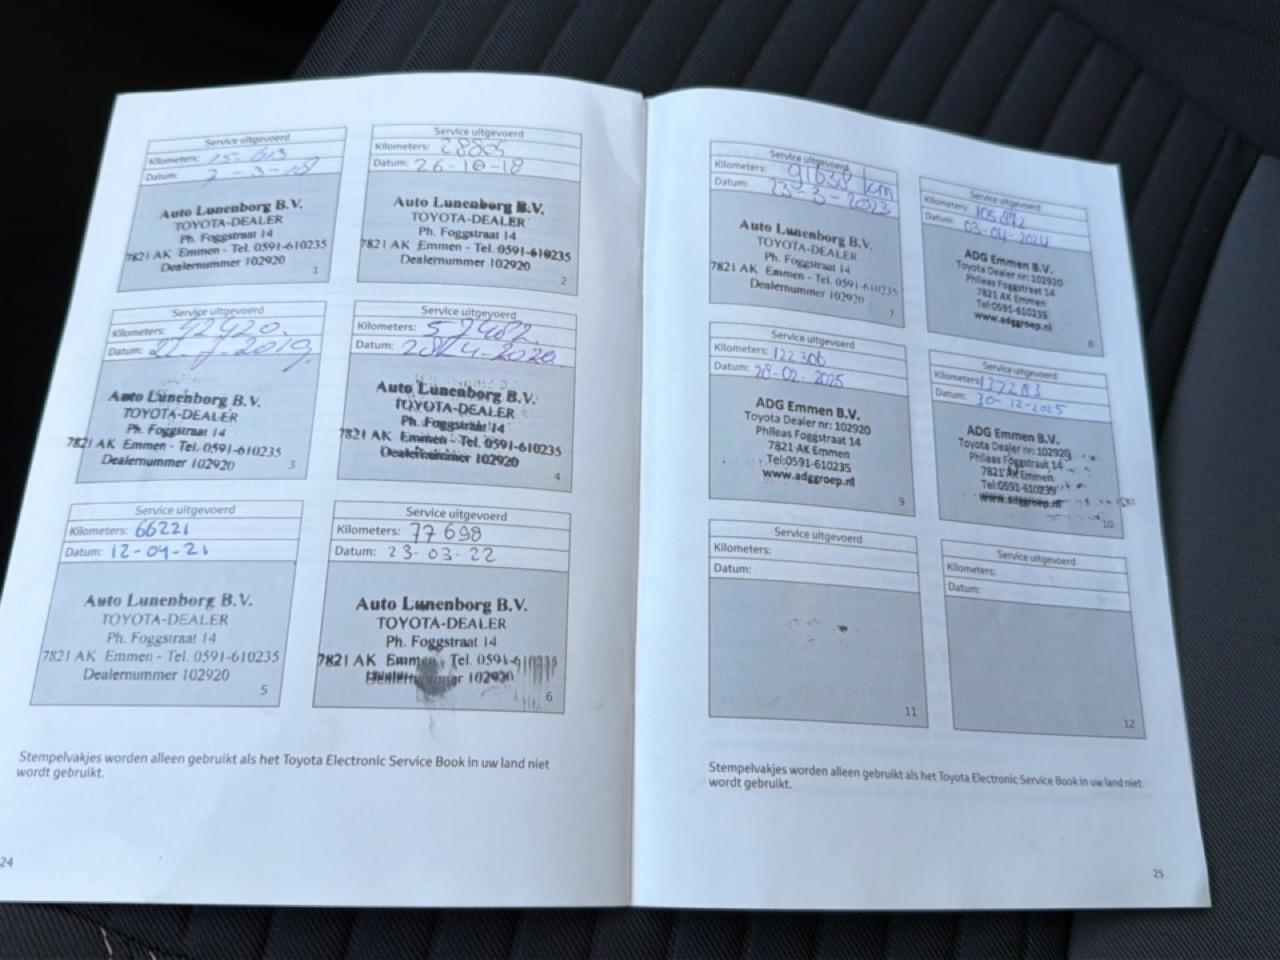 Service uitgevoerd
Kilometers: 15-613
Datum: 2-3-18
Auto Lunenborg B.V.
TOYOTA-DEALER
Ph. Foggstraat 14
7821 AK Emmen - Tel. 0591-610235
Dealernummer 102920
1
Service uitgevoerd
Kilometers:
Datum: 26-10-18
Auto Lunenborg B.V.
TOYOTA-DEALER
Ph. Foggstraat 14
7821 AK Emmen - Tel. 0591-610235
Dealernummer 102920
2
Service uitgevoerd
Kilometers: 42420.
Datum:
Auto Lunenborg B.V.
TOYOTA-DEALER
Ph. Foggstraat 14
7821 AK Emmen - Tel. 0591-610235
Dealernummer 102920
3
Service uitgevoerd
Kilometers:
Datum:
Auto Lunenborg B.V.
TOYOTA-DEALER
Ph. Foggstraat 14
7821 AK Emmen - Tel. 0591-610235
Dealernummer 102920
4
Service uitgevoerd
Kilometers: 66221
Datum: 12-04-21
Auto Lunenborg B.V.
TOYOTA-DEALER
Ph. Foggstraat 14
7821 AK Emmen - Tel. 0591-610235
Dealernummer 102920
5
Service uitgevoerd
Kilometers: 77698
Datum: 23-03-22
Auto Lunenborg B.V.
TOYOTA-DEALER
Ph. Foggstraat 14
7821 AK Emmen - Tel. 0591-610235
Dealernummer 102920
6
Stempelvakjes worden alleen gebruikt als het Toyota Electronic Service Book in uw land niet
wordt gebruikt.
24
Service uitgevoerd
Kilometers: 91638 km
Datum: 23-3-2023
Auto Lunenborg B.V.
TOYOTA-DEALER
Ph. Foggstraat 14
7821 AK Emmen - Tel. 0591-610235
Dealernummer 102920
7
Service uitgevoerd
Kilometers: 105872
Datum: 03-04-2024
ADG Emmen B.V.
Toyota Dealer nr: 102920
Phileas Foggstraat 14
7821 AK Emmen
Tel:0591-610235
www.adggroep.nl
8
Service uitgevoerd
Kilometers: 122306
Datum: 28-02-2025
ADG Emmen B.V.
Toyota Dealer nr: 102920
Phileas Foggstraat 14
7821 AK Emmen
Tel:0591-610235
www.adggroep.nl
9
Service uitgevoerd
Kilometers:
Datum: 30-12-2025
ADG Emmen B.V.
Toyota Dealer nr: 102920
Phileas Foggstraat 14
7821 AK Emmen
Tel:0591-610235
www.adggroep.nl
10
Service uitgevoerd
Kilometers:
Datum:
11
Service uitgevoerd
Kilometers:
Datum:
12
Stempelvakjes worden alleen gebruikt als het Toyota Electronic Service Book in uw land niet
wordt gebruikt.
25